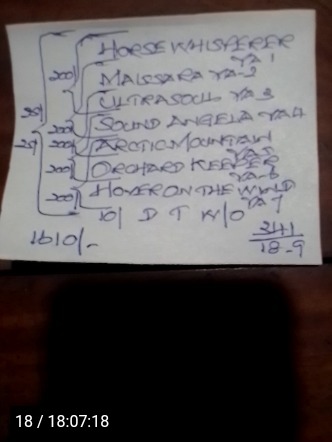 HORSE WHISPERER
YA 1
200 MALSSARA YA-2
ULTRASOUL YA 3
200 SOUND ANGELA YA4
200 ARCTIC MOUNTAIN
YA 5
200 ORCHARD KEEPER
YA-6
200 HOVER ON THE WIND
YA 7
10/ D T W/O
1610/- 341
18-9
18 / 18:07:18